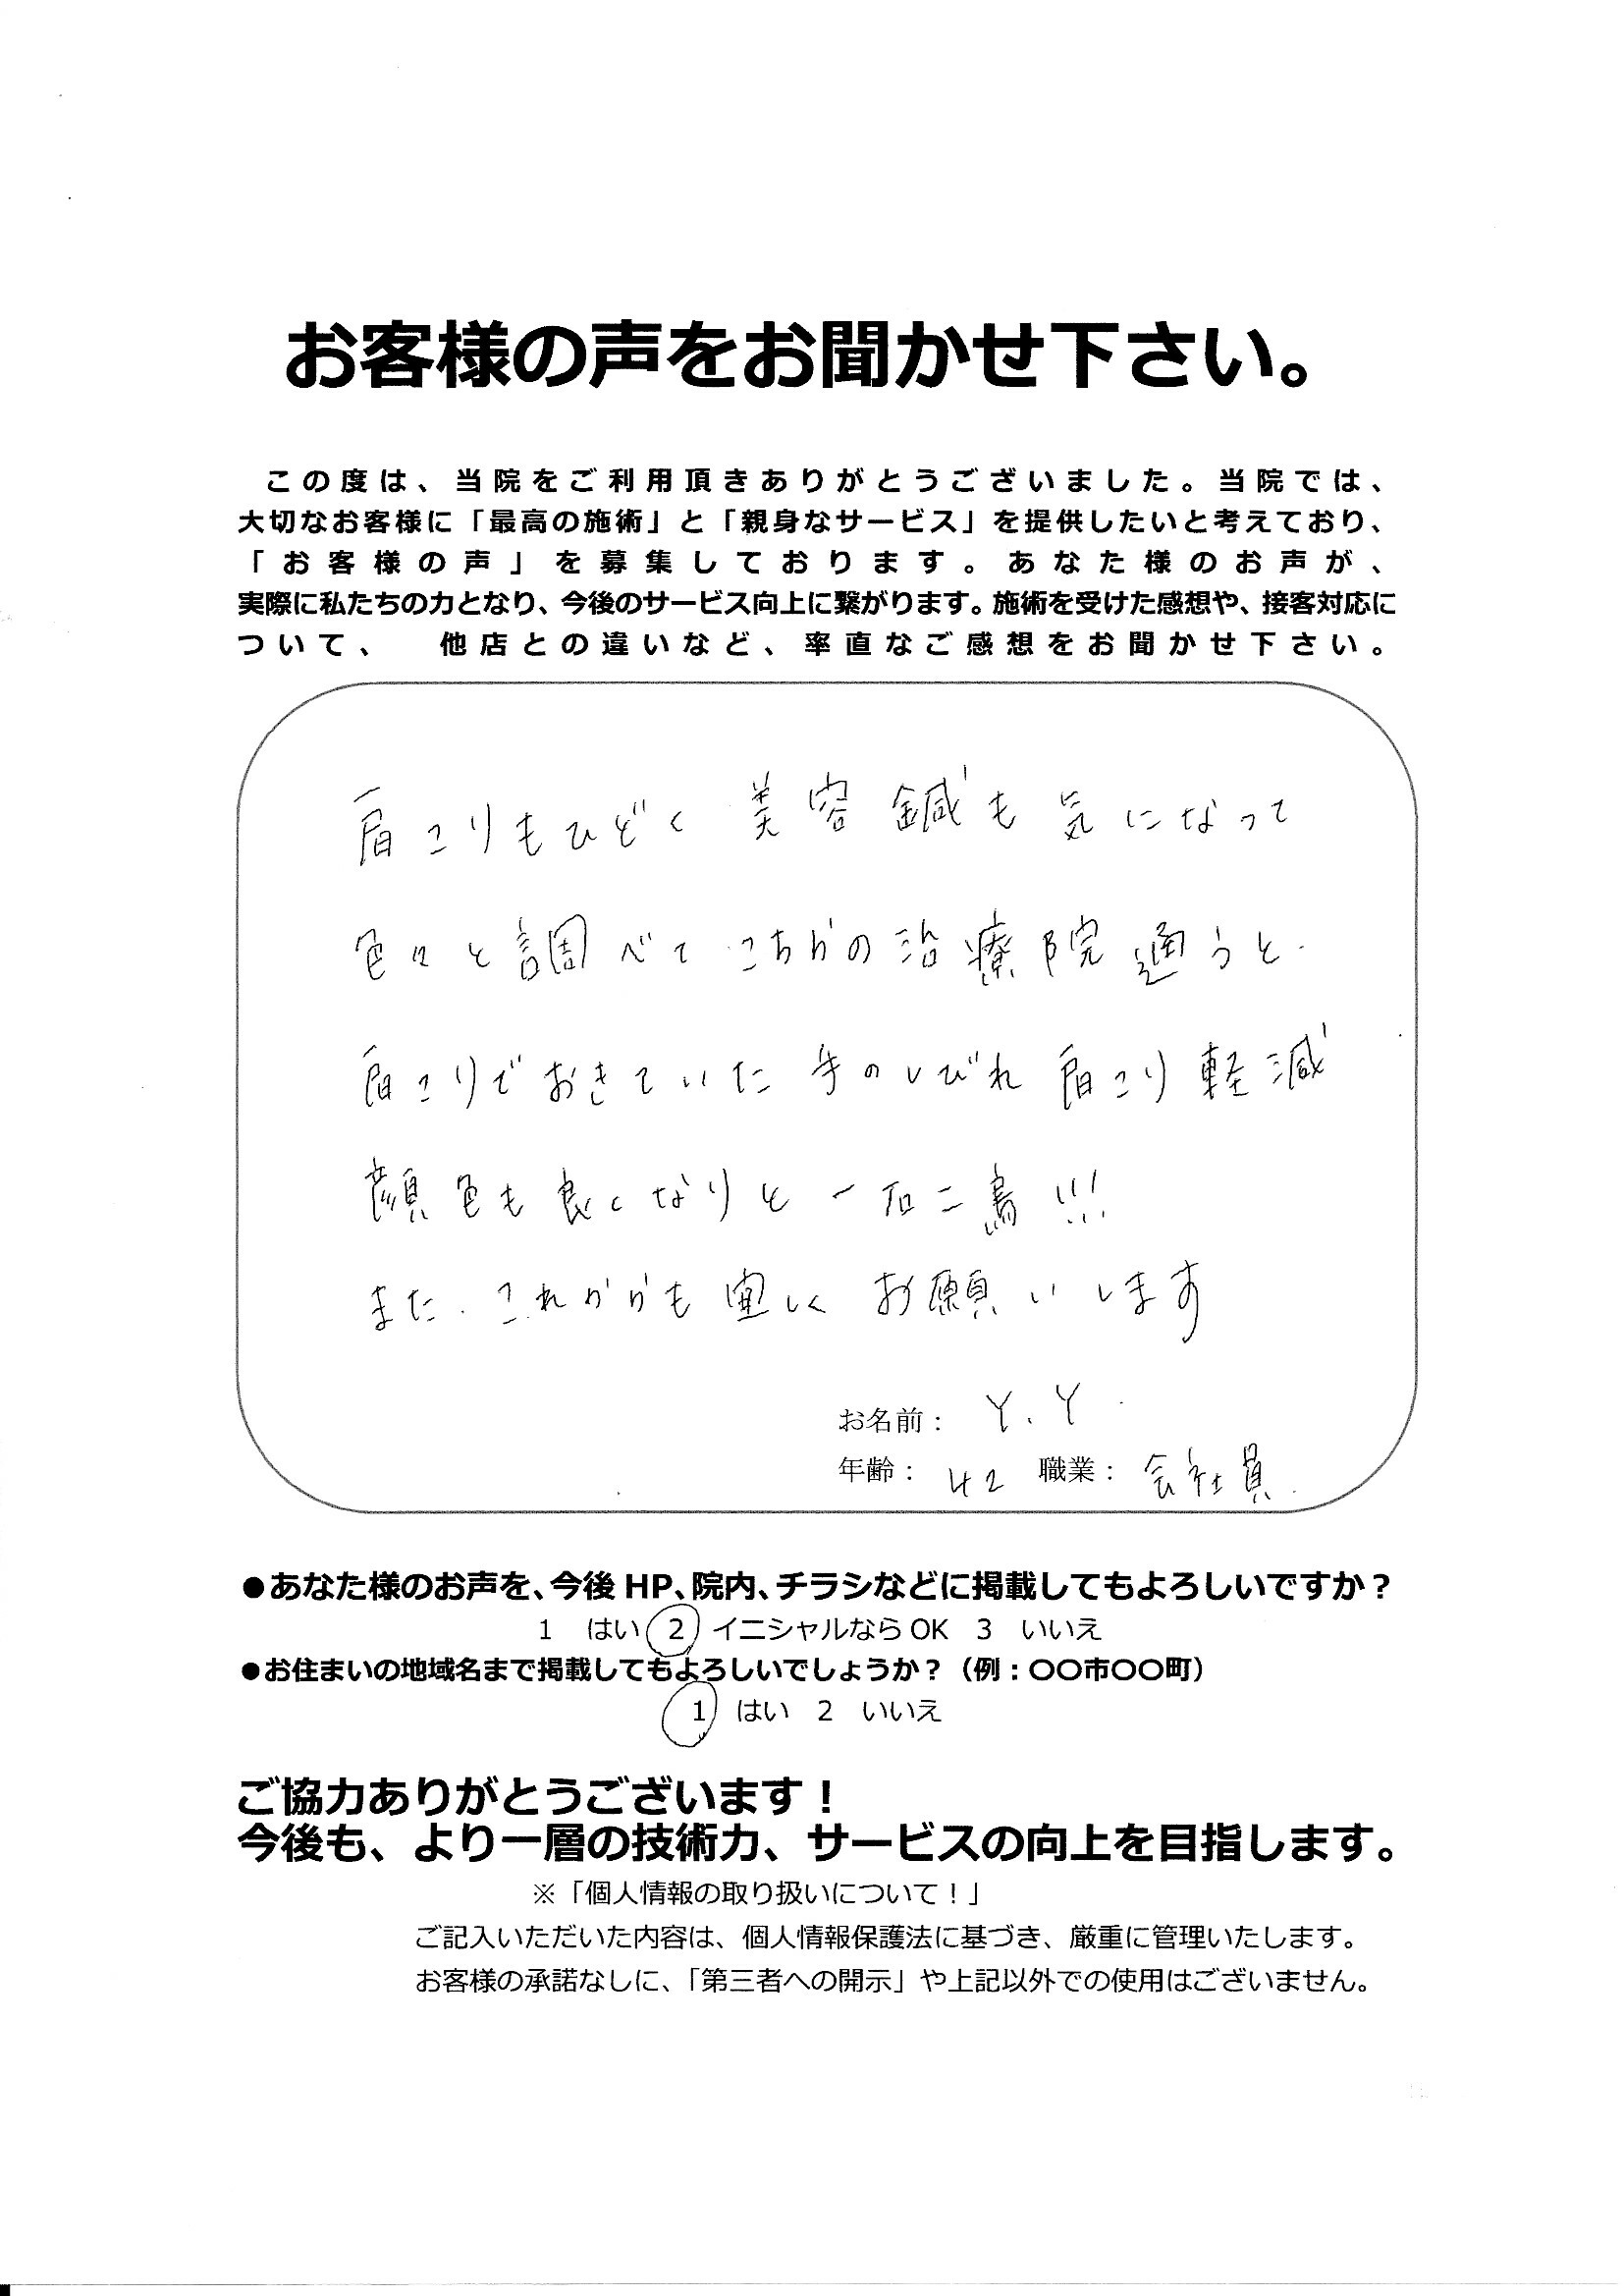 お客様の声をお聞かせ下さい。
この度は、当院をご利用頂きありがとうございました。当院では、
大切なお客様に「最高の施術」と「親身なサービス」を提供したいと考えており、
「お客様の声」を募集しております。あなた様のお声が、
実際に私たちの力となり、今後のサービス向上に繋がります。施術を受けた感想や、接客対応に
ついて、 他店との違いなど、率直なご感想をお聞かせ下さい。
肩こりもひどく 美容鍼も気になって
色々と調べてこちらの治療院通うと.
肩こりでおきていた 手のしびれ 肩こり 軽減
顔色も良くなりと 一石二鳥!!!
また.これからも宜しく お願いします
お名前： Y.Y.
年齢： 42 職業： 会社員.
●あなた様のお声を、今後 HP、院内、チラシなどに掲載してもよろしいですか？
1 はい 2 イニシャルなら OK 3 いいえ
●お住まいの地域名まで掲載してもよろしいでしょうか？（例：〇〇市〇〇町）
1 はい 2 いいえ
ご協力ありがとうございます！
今後も、より一層の技術力、サービスの向上を目指します。
※「個人情報の取り扱いについて！」
ご記入いただいた内容は、個人情報保護法に基づき、厳重に管理いたします。
お客様の承諾なしに、「第三者への開示」や上記以外での使用はございません。